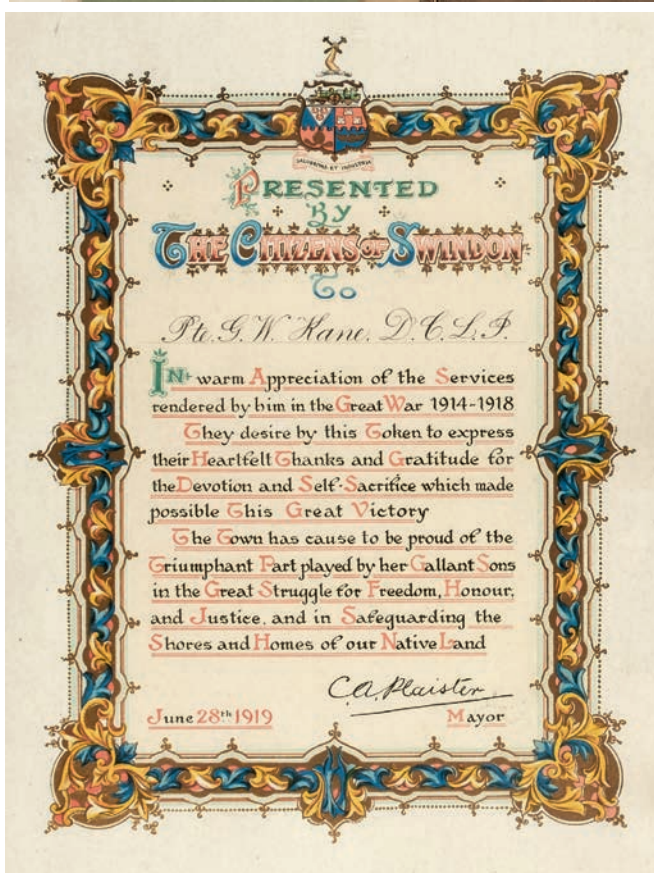 SALUBRITAS ET INDUSTRIA
PRESENTED
BY
THE CITIZENS OF SWINDON
To
Pte. G. W. Kane. D. C. L. I.
IN warm Appreciation of the Services
rendered by him in the Great War 1914-1918
They desire by this Token to express
their Heartfelt Thanks and Gratitude for
the Devotion and Self-Sacrifice which made
possible This Great Victory
The Town has cause to be proud of the
Triumphant Part played by her Gallant Sons
in the Great Struggle for Freedom, Honour,
and Justice, and in Safeguarding the
Shores and Homes of our Native Land
C.A. Plaister
June 28th 1919 Mayor